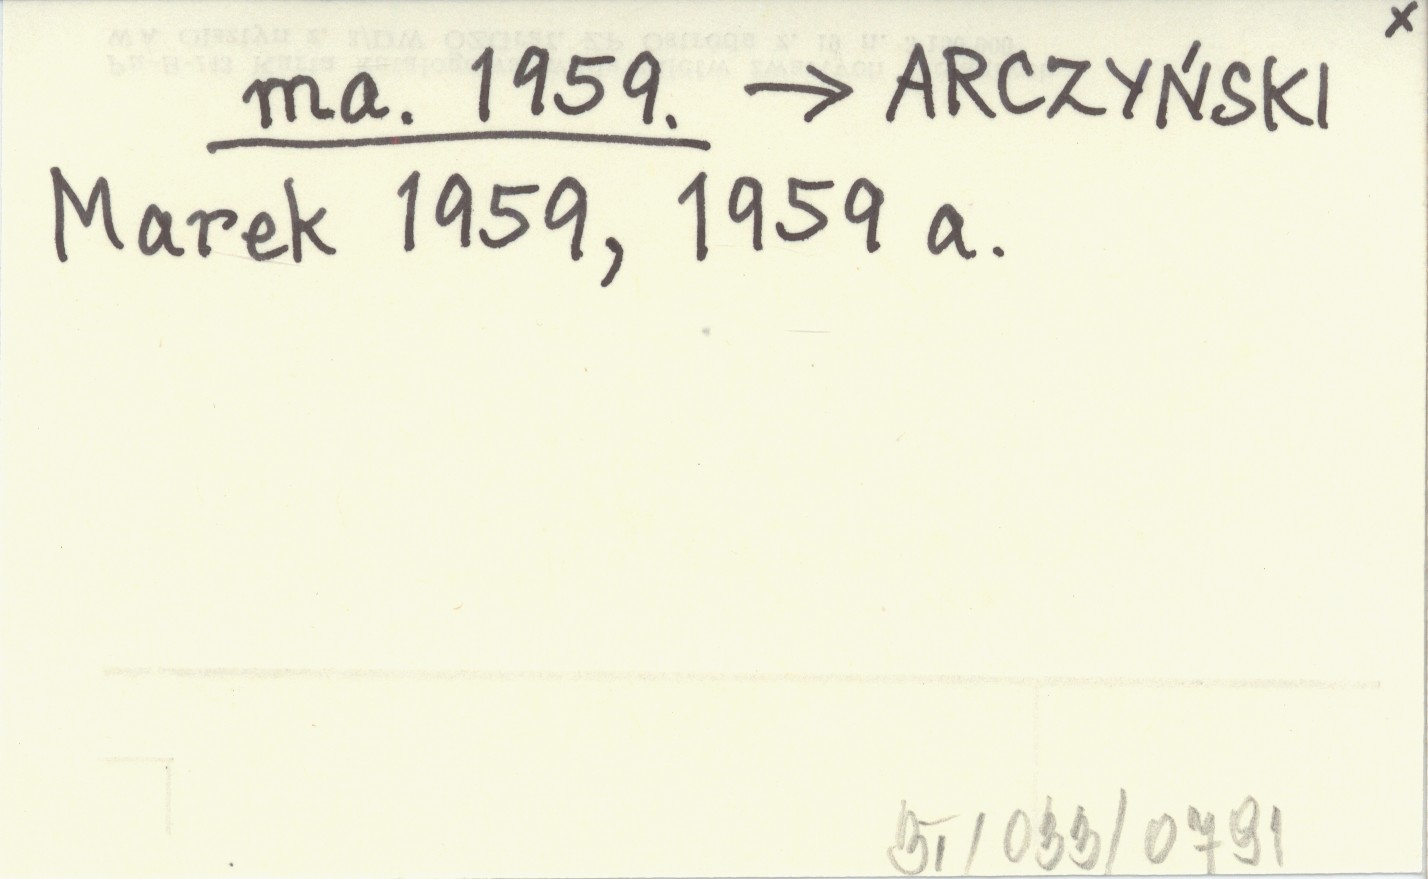 x
ma. 1959. → ARCZYŃSKI
Marek 1959, 1959 a.
/ 033 / 0791